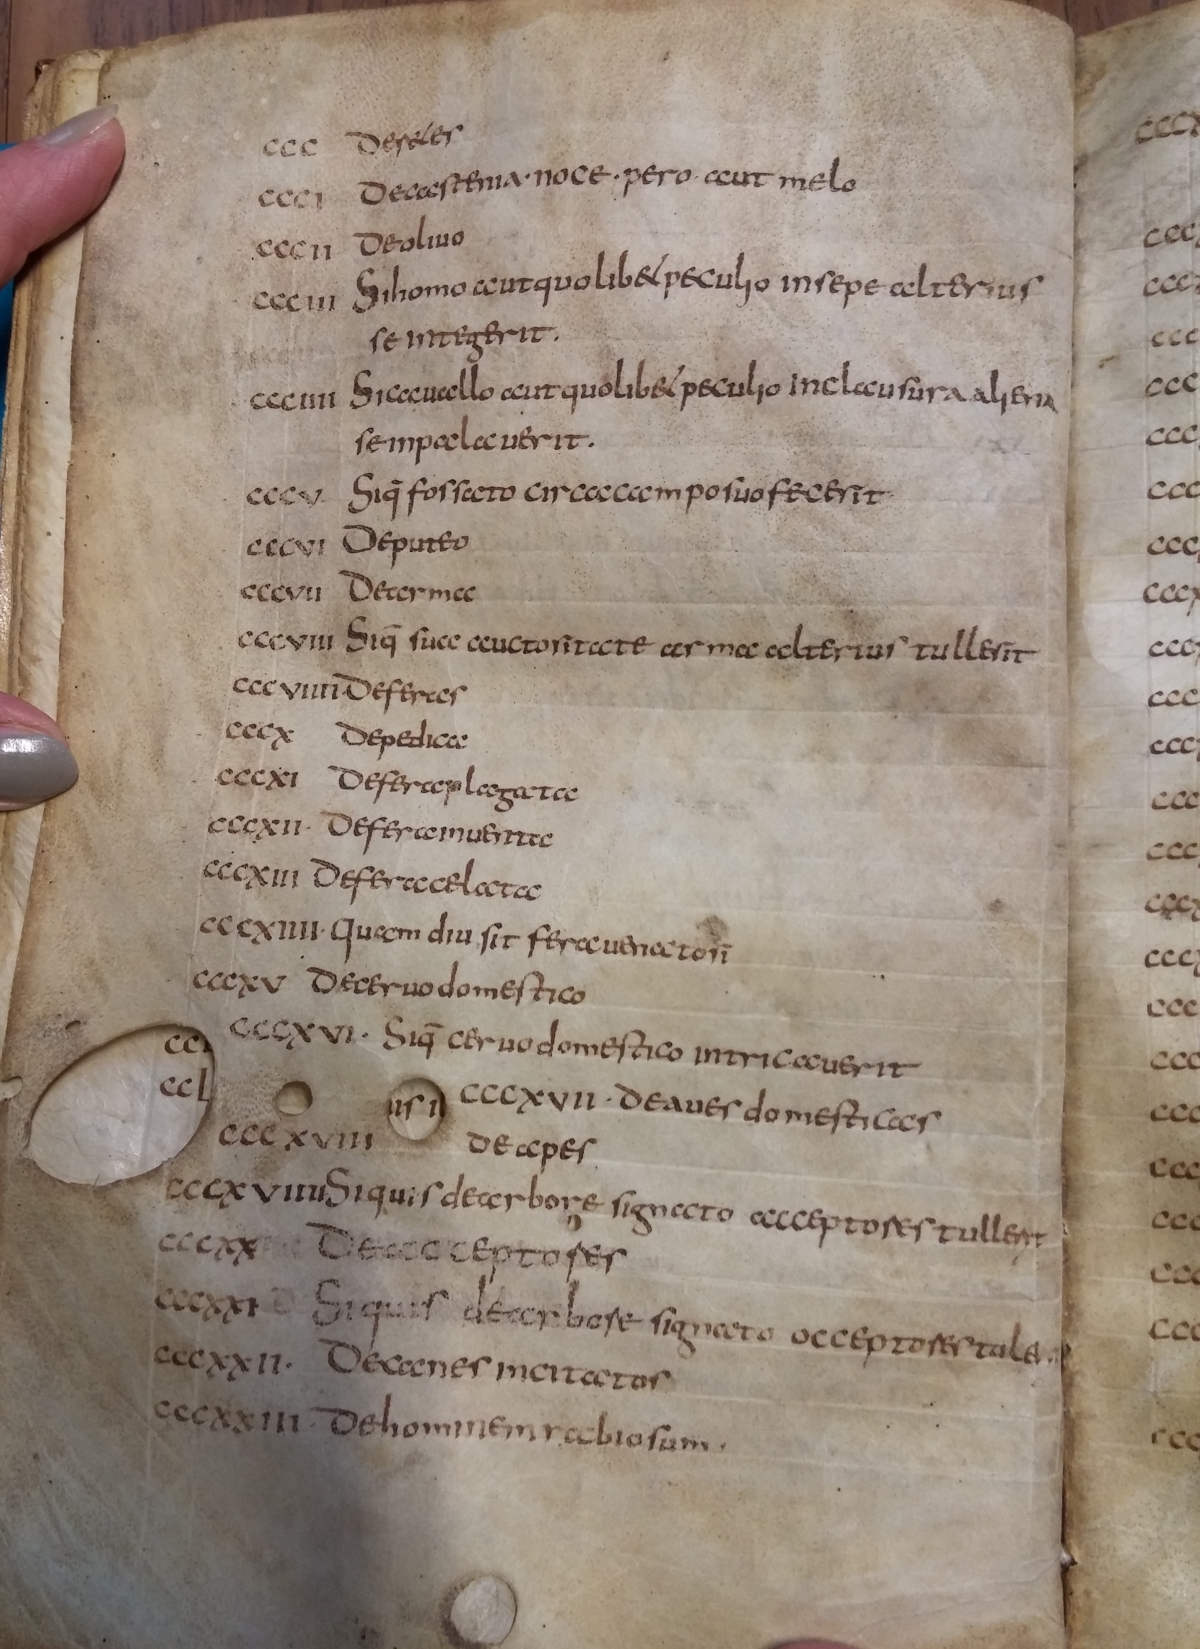 ccc Desales
ccci Decastenia · noce · pero · aut melo
cccii Deoliuo
ccciii Sihomo autquolib& peculio insepe alterius
se integerit.
ccciiii Sicauallo autquolib& peculio inclausura aliena
se inpalauerit.
cccv Siq̄ fossato circacampo suo fecerit
cccvi Deputeo
cccvii Dearma
cccviii Siq̄ sua auctoritate arma alterius tullerit
cccviiii Deferas
cccx Depedica
cccxi Deferaplagata
cccxii · Deferainuenta
cccxiii Defera
cccxiiii · Quamdiu sit feraauenatori
cccxv Deceruodomestico
cccxvi · Siq̄ ceruodomestico intricauerit
cccxvii · Deaues domesticas
cccxviii Deapes
cccxviiii Siquis dearbore signato acceptores tullerit
cccxx Deacceptores
cccxxi Siquis dearbore signato acceptores
cccxxii · Decanes incitatos
cccxxiii · Dehominem rabiosum ·
ccc
ccc
ccc
ccc
ccc
ccc
ccc
ccc
ccc
ccc
ccc
ccc
ccc
ccc
ccc
ccc
ccc
ccc